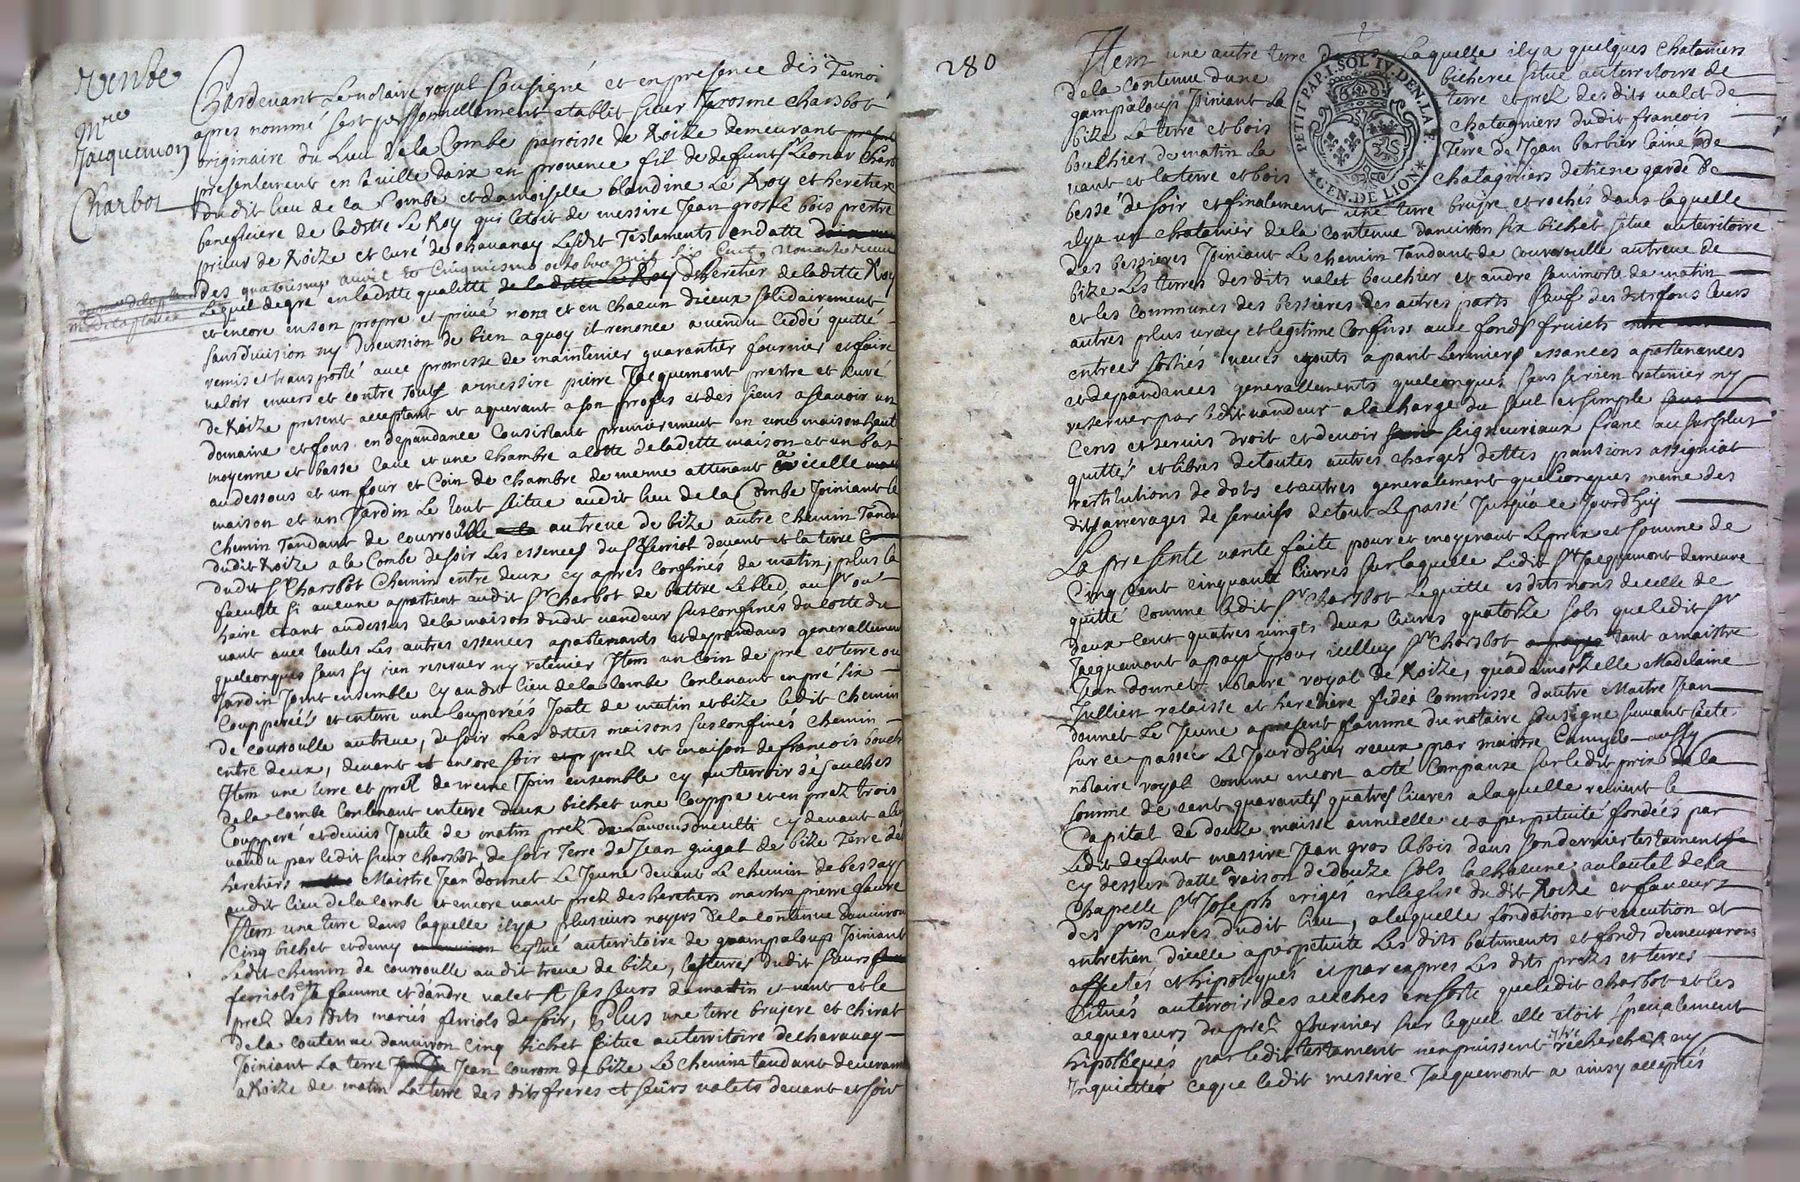 Vente
Mre
Jacquemon
Charbot
Pardevant Le notaire royal Sousigné et en presence des Temoins
apres nommé sest personnellement etablit sieur Jerosme charsbot
originaire du Lieu de la Combe parroisse de Roize demeurant
presentement en la ville daix en provence fil de defunts Leonar Charb
du dit lieu de la Combe et damoiselle blandine Le Roy et heretier
beneficiere de laditte Le Roy qui letoit de messire Jean gros le bois prestre
prieur de Roize et curé de chavanay Lesdit Testaments en datte
des quatriesme avril et Cinquiesme octobre mil six Cents nonante
Lequel degre en laditte qualitté de la ditte Le Roy dheretier de laditte Roy
et encore en son propre et privé nom et en chacun diceux solidairement
sans division ny discussion de bien a quoy il renonce a vendu Ceddé quitté
remis et transporté avec promesse de maintenier guarantier fournier et faire
valoir envers et contre Touts a messire pierre Jacquemont prestre et curé
de Roize present acceptant et aquerant a son proffis et des siens a scavoir un
domaine et fons en dependance Consistant premierement en une maison haut
moyenne et basse Cave et une chambre a cotte de laditte maison et un bas
au dessous et un four et Coin de chambre de mesme attenant a icelle
maison et un Jardin Le tout scitue audit lieu de la Combe Joiniant le
chemin Tandant de courroulle au treve de bize autre chemin Tanda
dudit Roize a la Combe de soir Les essences du Sr ferriot devant et la terre
dudit Sr Charsbot Chemin entre deux cy apres confinés de matin, plus la
faculté si aucune apartient audit Sr Charbot de battre Le bled, au Sr ou
haire etant au dessus de la maison dudit vandeur sus confinés du cotte du
vant avec toutes Les autres essences apartenants et dependans generallement
quelconques sans sy rien reserver ny retenier Item un Coin de pre et terre ou
Jardin Joint ensemble cy audit lieu de la Combe Contenant en pré six
Coupperées et en terre une Couperées Joute de matin et bize ledit chemin
de courroulle au treve, de soir mesdittes maisons sus confinés chemin
entre deux, devant et encore soir prel et maison de francois bouch
Item une terre et prel de mesme Join ensemble cy au terroir des auches
de la combe Contenant en terre deux bichet une Couppe et en prez trois
Coupperé et demis Joute de matin prel de cy devant a
vandu par ledit sieur charsbot de soir Terre de Jean guigal de bize Terre de
heretiers Maistre Jean donnet Le Jeune devant Le chemin de bessay
audit lieu de la combe et encore vant prel des heretiers maistre pierre faure
Item une terre dans laquelle il ya plusieurs noyers de la contenue denviron
Cinq bichet et demy cytué au territoire de guampaloup Joiniant
Ledit chemin de courroulle audit treve de bize, les terres dudit sieurs
ferriols sa famme et dandre valet et ses seurs de matin et vent et le
prel des dits maries ferriols de soir, Plus une terre brujere et chirat
de la contenue denviron Cinq bichet scitue au territoire de chavanay
Joiniant La terre Jean courom de bize Le chemin tandant de veranne
a Roize de matin La terre des dits freres et seurs valets devant et soir
280
Item une autre terre dans Laquelle il ya quelques chataniers
de la Contenue dune bicheree scitue au territoire de
gampaloup Joiniant La terre et prel des dits valet de
bize La terre et bois chatagniers dudit francois
bouchier de matin La Terre de Jean barbier lainé de
vant et la terre et bois chatagniers detiene garde de
besse de soir et finalement une terre brujre et rochés dans laquelle
il ya un chatanier de la contenue denviron six bichet scitue au territoire
des bessieres Joiniant Le chemin Tandant de Courroulle au treve de
bize Les terres des dits valet bouchier et andre de matin
et les Communes des bessieres des autres parts sauf des dits fons leurs
autres plus vray et legitime Confins avec fonds fruicts
entrees sorties veues egouts apant essances apartenances
et dependances generallements quelconques sans se rien retenier ny
reserver par ledit vandeur a la charge du seul et simple
Cens et servis droit et devoir seigneuriaux franc au surplus
quittes et libres de toutes autres charges dettes pansions assigniat
restitutions de dots et autres generalement quelconques meme des
dits arrerages de servis de tout Le passé Jusqua ce Jourdhuy
La presente vante faite pour et moyenant Le prix et somme de
Cinq Cent cinquante Livres sur laquelle Ledit Sr Jacquemont demeure
quitté comme ledit Sr Charsbot Lequitte esdits noms de celle de
deux cent quatres vingts deux livres quatorze sols que ledit Sr
Jacquemont a payé pour icelluy Sr Charsbot tant a maistre
Jean donnet notaire royal de Roize, qua damoiselle Madelaine
Jullien relaisse et herediere fidei commisse dautre Maitre Jean
donnet Le Jeune a present famme du notaire sousigné suivant lacte
sur ce passer Le Jourdhuy receux par maitre aussy
notaire royal comme encore a été Compansé sur ledit prix de la
somme de cent quarantes quatres livres a laquelle revient le
Capital de douze maisse annuelle et a perpetuité fondées par
Ledit defunt messire Jean gros Lebois dans son dernier testament
cy dessus datté a raison de douze sols la chacune au lautel de la
Chapelle St Joseph erigés en leglise du dit Roize et faveur
des Srs curés dudit lieu, a laquelle fondation et execution et
entretien dicelle a perpetuité Les dits batiments et fonds demeurerons
affectés et hipotequés et par expres les dits prels et terres
scitués au terroir des auches en sorte que ledit charbot et les
acquereurs du prel fournier sur lequel elle etoit specialement
hipotequés par ledit testament nen puissent etre recherchés ny
Inquietter ce que ledit messire Jacquemont a ainsy acceptés
PETIT PAP. 1. SOL. IV. DEN. LA F.
GEN. DE LION